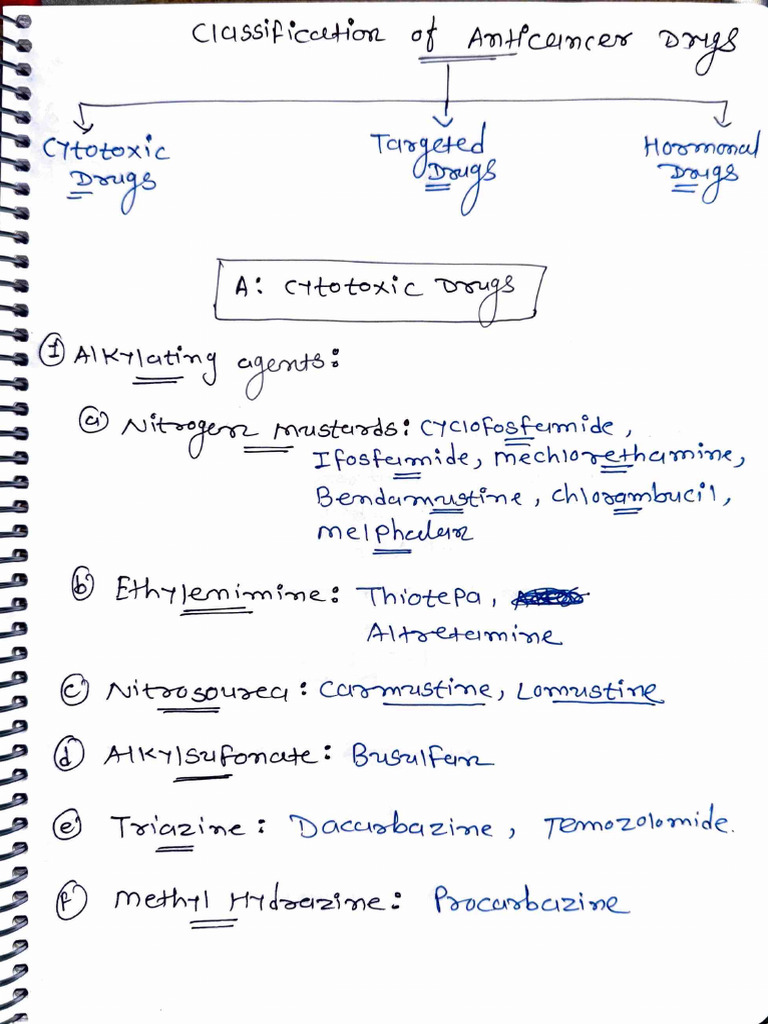 Classification of Anticancer Drugs
Cytotoxic Drugs
Targeted Drugs
Hormonal Drugs
A: Cytotoxic Drugs
① Alkylating agents:
ⓐ Nitrogen mustards: Cyclofosfamide,
Ifosfamide, mechlorethamine,
Bendamustine, Chlorambucil,
melphalan
ⓑ Ethylenimine: Thiotepa,
Altretamine
ⓒ Nitrosourea: Carmustine, Lomustine
ⓓ Alkylsufonate: Busulfan
ⓔ Triazine: Dacarbazine, Temozolomide.
ⓕ Methyl Hydrazine: Procarbazine